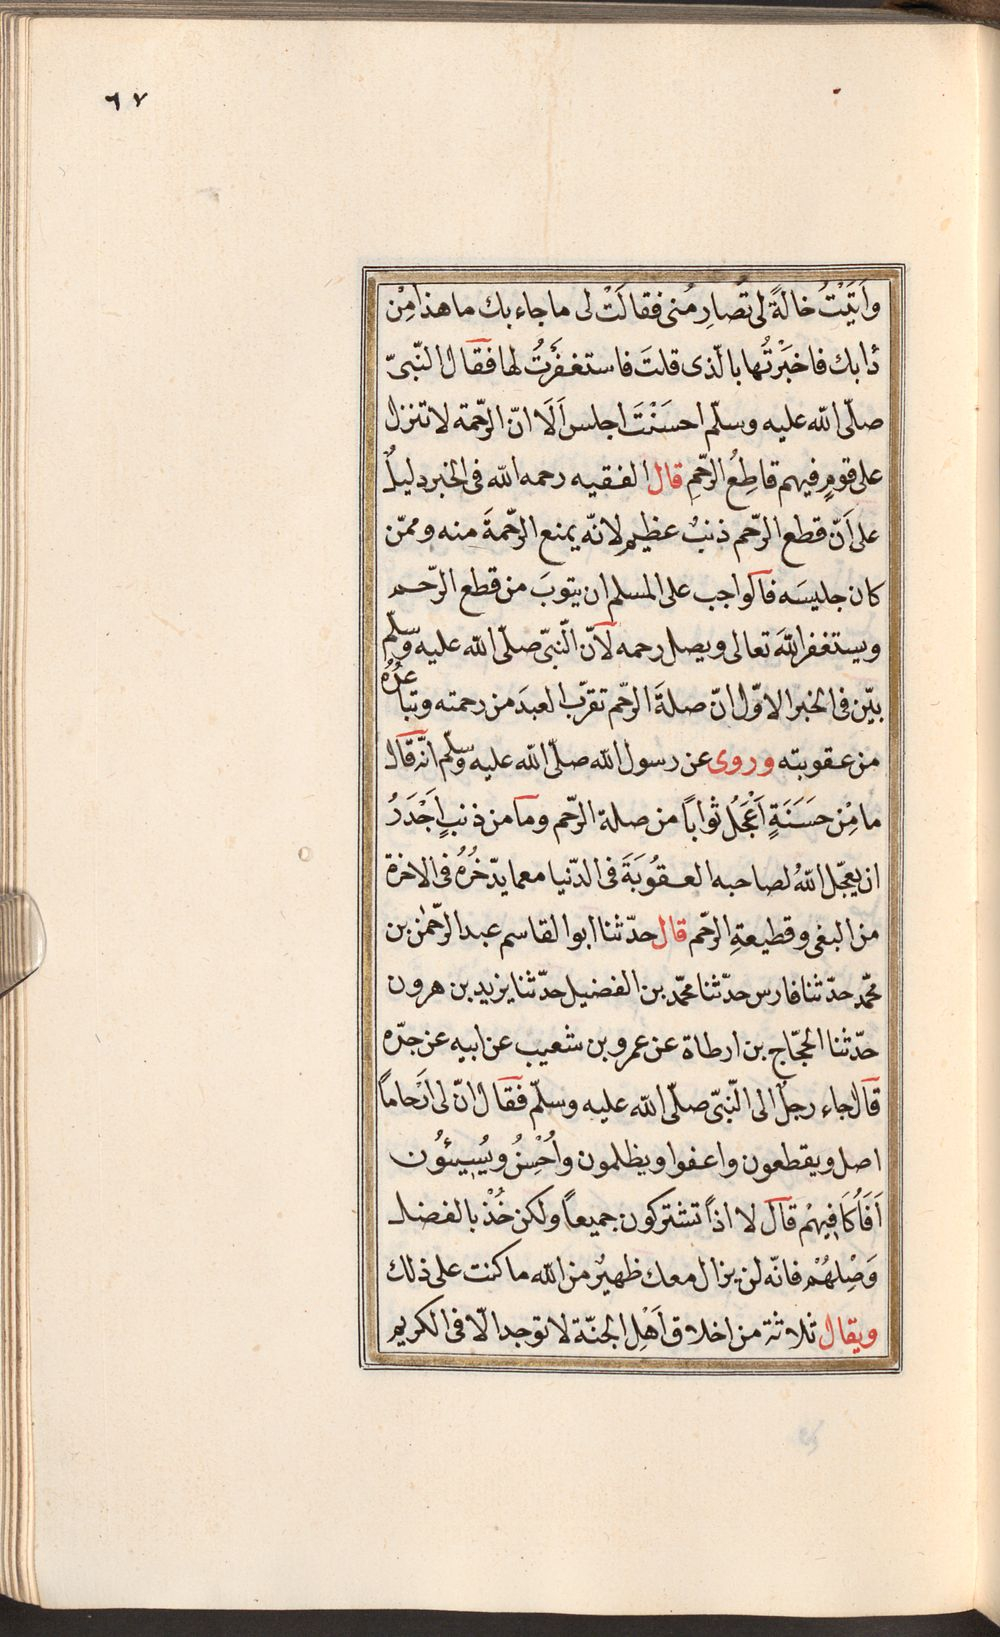 ٦٧
وَاَتَيْتُ خالةً لى تُصارِمُنى فقالَتْ لى ما جاء بك ما هذا مِنْ
دأبك فاخبَرْتُها بالّذى قلتَ فاستغفَرَتُ لها فقال النّبىّ
صلّى الله عليه وسلّم احسَنْتَ اجلس اَلَا انّ الرّحمة لا تنزل
على قومٍ فيهم قاطِعُ الرّحمِ قال الفقيه رحمه الله فى الخبر دليلٌ
على اَنّ قطع الرّحم ذنبٌ عظيم لانّه يمنع الرّحمةَ منه وممّن
كان جليسَه فالواجب على المسلم ان يتوبَ من قطع الرّحم
ويستغفر اللهَ تعالى ويصل رحمه لانّ النّبىّ صلّى الله عليه وسلّم
بيّن فى الخبر الاوّل انّ صلةَ الرّحم تقرّب العبدَ من رحمته وتباعدُهُ
من عقوبته وروى عن رسول الله صلّى الله عليه وسلّم انّه قال
ما مِنْ حَسَنَةٍ اَعْجَلُ ثواباً من صلة الرّحم وما من ذنبٍ اَجْدَرُ
ان يعجّل اللهُ لصاحبه العقُوبَةَ فى الدّنيا مع ما يدّخُرُهُ فى الاخرة
من البغى وقطيعةِ الرّحم قال حدّثنا ابو القاسم عبد الرّحمٰن بن
محمّد حدّثنا فارس حدّثنا محمّد بن الفضيل حدّثنا يزيد بن هرون
حدّثنا الحجّاج بن ارطاة عن عمرو بن شعيب عن ابيه عن جدّه
قال جاء رجلٌ الى النّبىّ صلّى الله عليه وسلّم فقال انّ لى اَرْحاماً
اصل ويقطعون واعفوا ويظلمون واُحْسِنُ ويُسِيئوُن
اَفَاُكَافِيهْم قال لا اذاً تشتركون جميعاً ولكن خُذْ بالفضل
وَصِلْهُمْ فانّه لن يزال معك ظهيرٌ من الله ما كنت على ذلك
ويقال ثلاثة من اخلاق اَهْلِ الجنّة لا توجد الّا فى الكريم